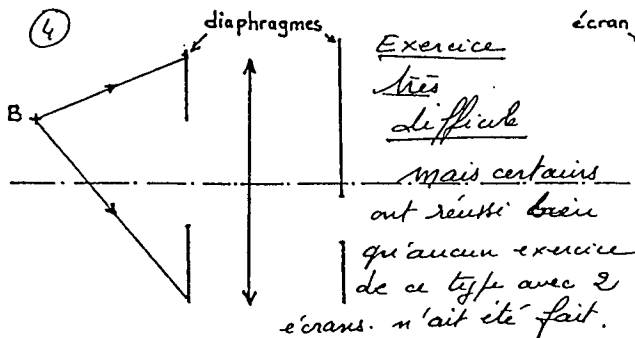 ④ diaphragmes écran
Exercice
très
difficile
B
mais certains
ont réussi bien
qu'aucun exercice
de ce type avec 2
écrans. n'ait été fait.